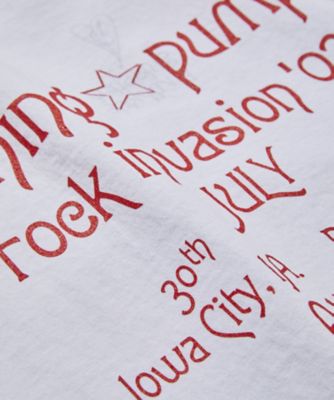 ning ☆ Pump
rock invasion '02
JULY
30th
Iowa City, IA.